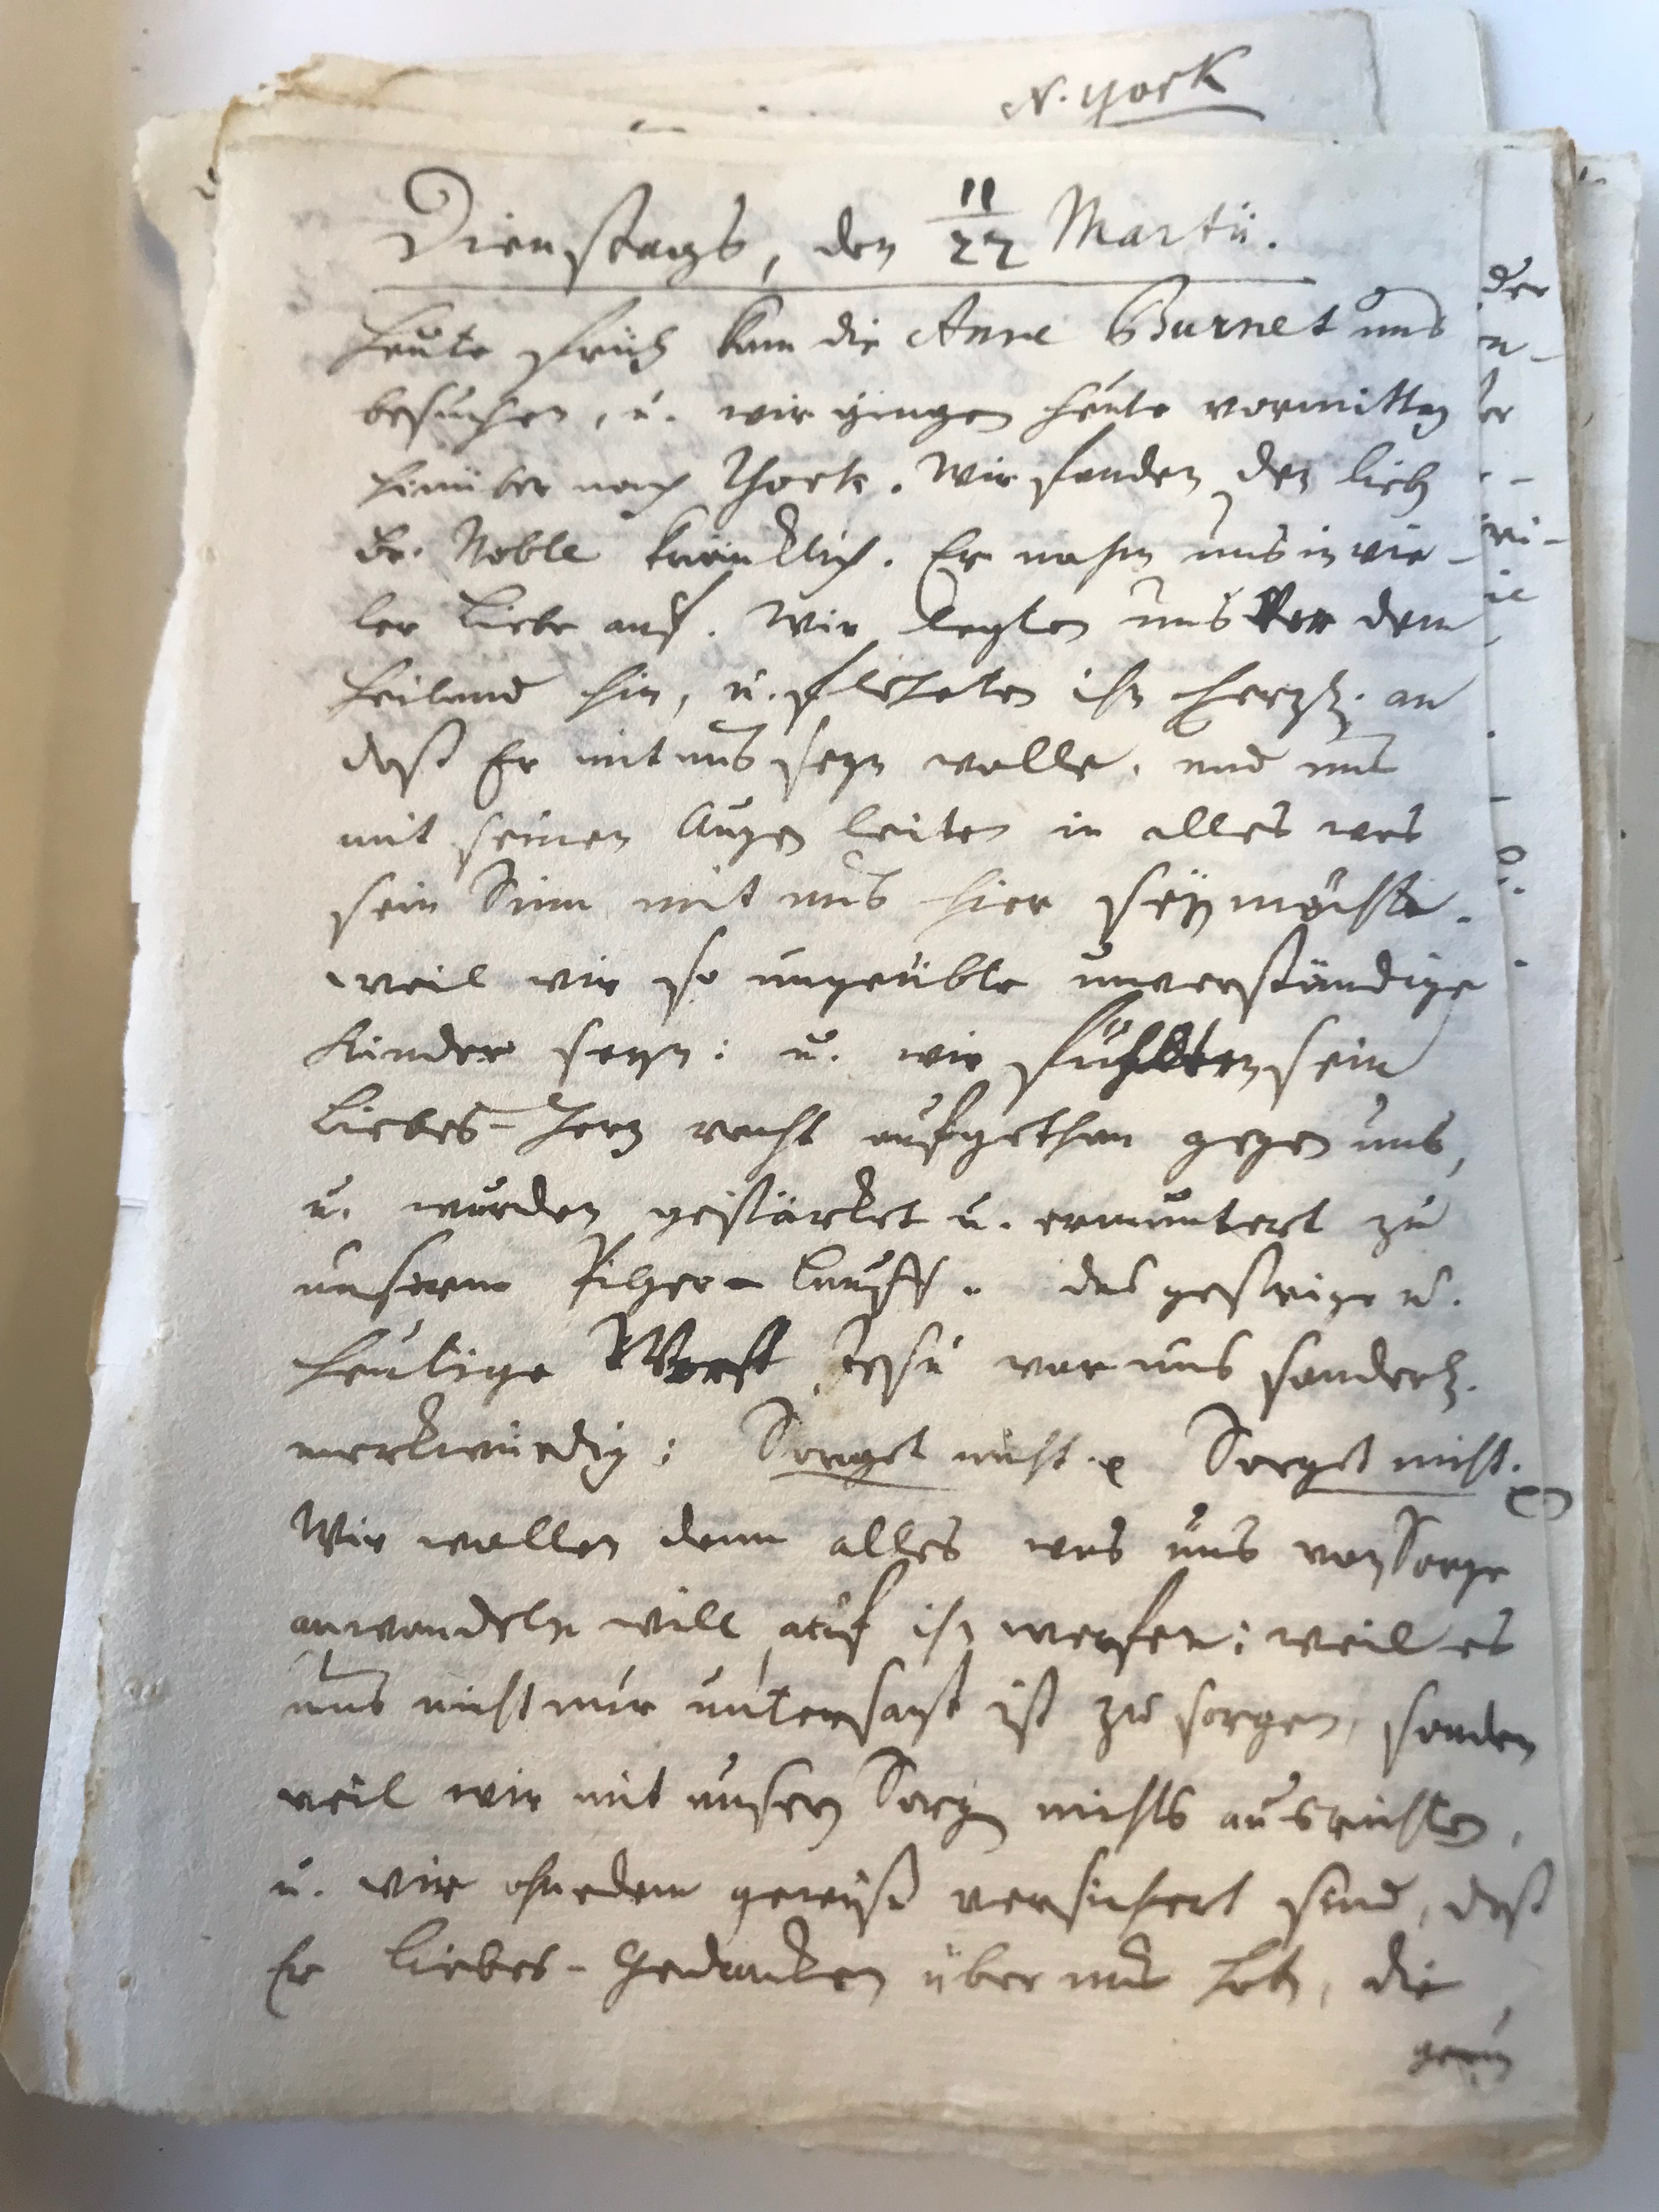 N. York
Dienstags, den 11/22 Martii.
Heute früh kam die Anne Burnet uns
besuchen, u. wir gingen heute vormittag
hinüber nach York. Wir fanden den lieb
Br. Noble kräncklich. Er nahm uns in vie-
ler Liebe auf. Wir legten uns vor dem
Heiland hin, u. fleheten ihn hertzl. an
daß Er mit uns seyn wolle, und uns
mit seinen Augen leiten in alles was
sein Sinn mit uns hier seyn möchte.
weil wir so ungeübte unverständige
Kinder seyn: u. wir fühlten sein
Liebes-Herz recht aufgethan gegen uns,
u. wurden gestärcket u. ermuntert zu
unserm Pilger-Lauff. das gestrige u.
heutige Wort Jesu war uns sonderl.
merkwürdig: Sorget nicht. Sorget nicht.
Wir wollen denn alles was uns von Sorge
anwandeln will auf ihn werfen: weil es
uns nicht nur untersagt ist zu sorgen, sondern
weil wir mit unsern Sorgen nichts ausrichten,
u. wir ohnedem gewiß versichert sind, daß
Er Liebes-Gedancken über uns hab, die